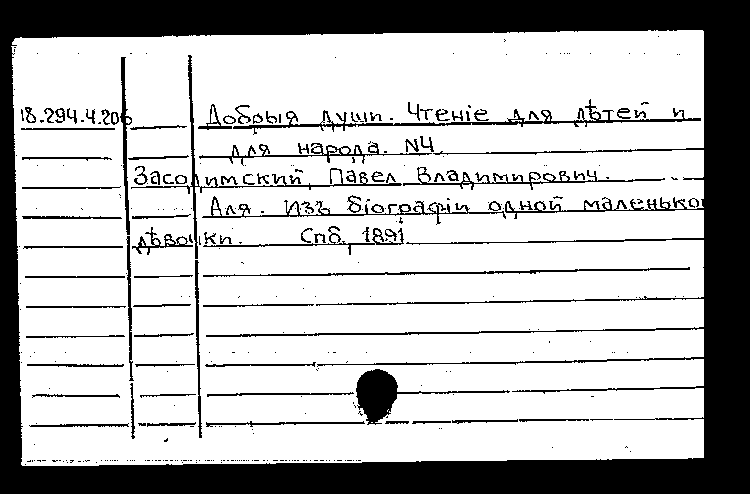 18.294.4.206 Добрыя души. Чтенiе для дѣтей и
для народа. N4
Засодимский, Павел Владимирович.
Аля. Изъ бiографiи одной маленькой
дѣвочки. Спб, 1891